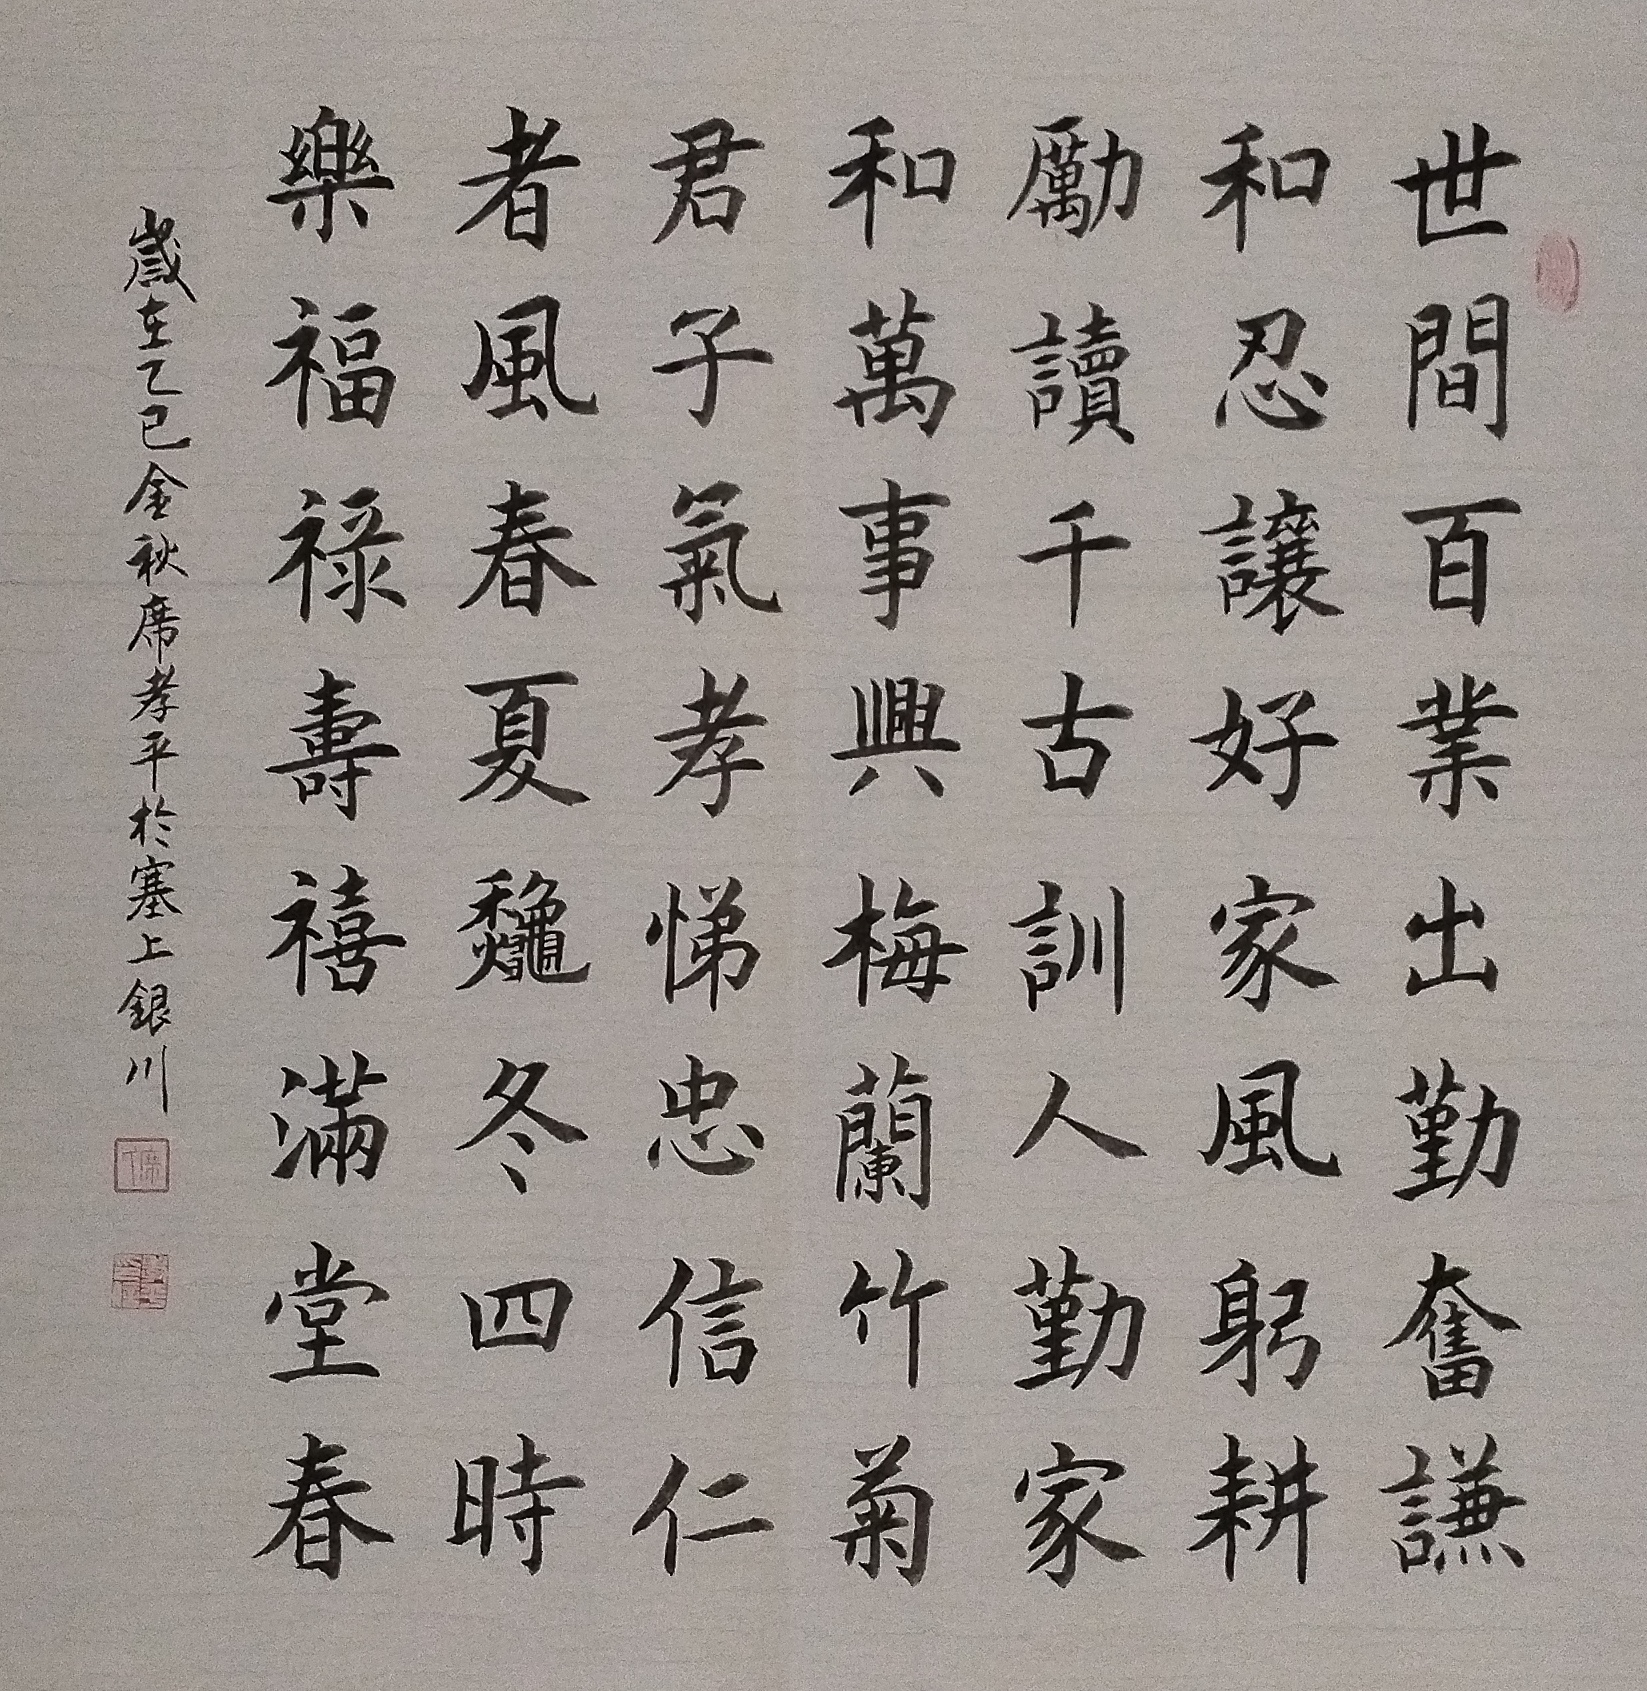 世間百業出勤奮謙
和忍讓好家風躬耕
勵讀千古訓人勤家
和萬事興梅蘭竹菊
君子氣孝悌忠信仁
者風春夏龝冬四時
樂福祿壽禧滿堂春
歲在乙巳金秋席孝平於塞上銀川